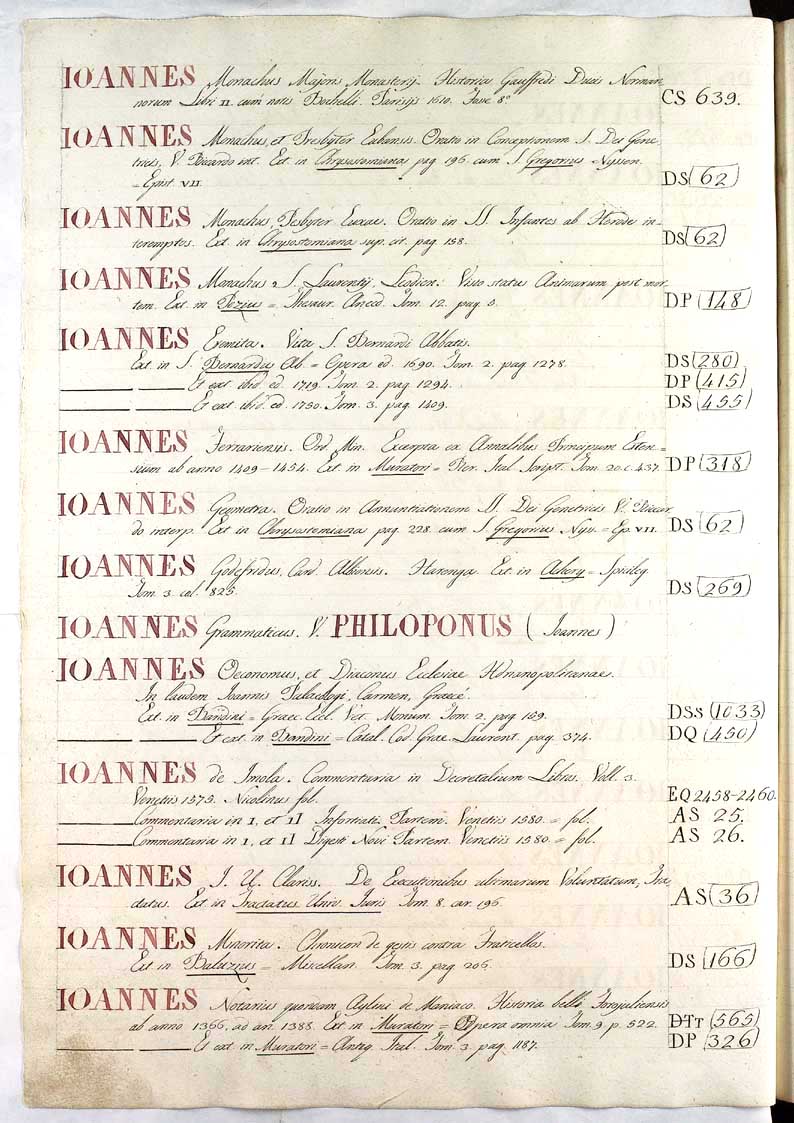 IOANNES Monachus Majoris Monasterij. Historia Gauffredi Ducis Norman
norum Libri II. cum notis Bochelli. Parisijs 1610. Fasc 8° CS 639.
IOANNES Monachus, et Presbyter Eubensis. Oratio in Conceptionem S. Dei Gene,
tricis, V. Piccardo int. Ext. in Chrysostomiana pag 196. cum S. Gregorius = Nyssen.
= Epist VII. DS (62)
IOANNES Monachus, Pesbyter Euxae. Oratio in SS. Infantes ab Herode in-
teremptos. Ext. in Chrysostomiana sup. cit. pag. 158. DS (62)
IOANNES Monachus S. Laurentij Leodien: Visio status Animarum post mor,
tem. Ext. in Pezius = Thesaur. Anecd. Tom. 12. pag. DP (148)
IOANNES Eremita. Vita S. Bernardi Abbatis.
Ext. in S. Bernardus Ab. = Opera ed. 1690. Tom. 2. pag 1278. DS (280)
Et ext ibid. ed. 1719. Tom. 2. pag 1294. DP (415)
Et ext ibid. ed. 1750. Tom. 3. pag. 1409. DS (455)
IOANNES Ferrariensis. Ord. Min. Excerpta ex Annalibus Principum Esten=
sium ab anno 1409-1454. Ext. in Muratori = Rer. Ital. Script. Tom. 20. c. 437. DP (318)
IOANNES Geometra. Oratio in Annuntiationem SS. Dei Genetricis V. Piccar
do interp. Ext in Chrysostomiana pag. 228. cum S. Gregorius = Nys. = Ep. VII. DS (62)
IOANNES Godefridus, Card. Albiensis. Harenga. Ext. in Achery = Spicileg
Tom. 3. col. 825. DS (269)
IOANNES Grammaticus. V. PHILOPONUS (Joannes)
IOANNES Oeconomus, et Diaconus Ecclesiae
In laudem Joannis Palaelogi, Carmen, Graecé.
Ext. in Bandini = Graec. Eccl. Vet. Monum. Tom. 2. pag 159. DSS (1033)
Et ext. in Bandini = Catal. Cod. Grae. Laurent. pag. 374. DQ (450)
IOANNES de Imola. Commentaria in Decretalium Libros. Voll. 3.
Venetiis 1575. Nicolinus fol. EQ 2458-2460.
Commentaria in I, et II Infortiati Partem. Venetiis 1580. = fol. AS 25.
Commentaria in I, et II Digesti Novi Partem. Venetiis 1580. = fol. AS 26.
IOANNES I. U. Clariss. De Executionibus ultimarum Voluntatum, Tra,
ctatus. Ext in Tractatus Univ. Juris Tom. 8. car. 196. AS (36)
IOANNES Minorita. Chronicon de gestis contra Fraticellos.
Ext in Baluzius = Miscellan. Tom. 3. pag 206. DS (166)
IOANNES Notarius quondam Aylini de Maniaco. Historia belli Forojuliensis
ab anno 1366, ad an. 1388. Ext in Muratori = Opera omnia Tom. 9. p. 522. DTT (565)
Et ext in Muratori = Antiq Ital. Tom. 3. pag 1187. DP (326)